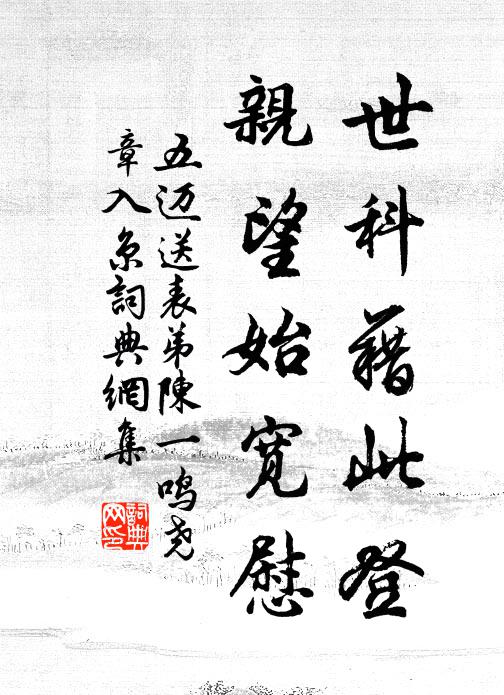 世科藉此登
親望始寬慰
五迈送表弟陳一鸣尧
章入京詞典網集
詞典
网印